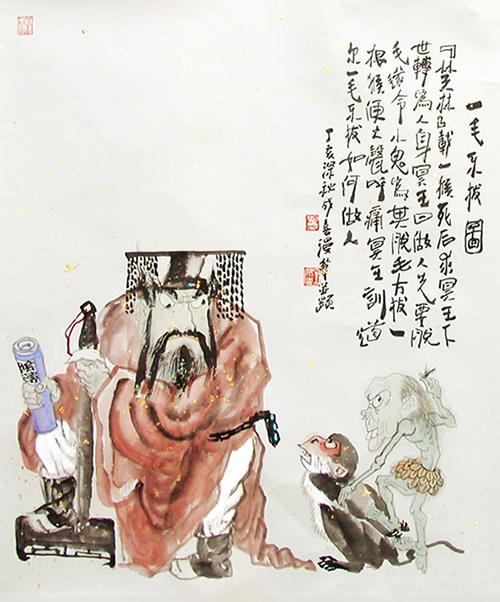 一毛不拔圖
『笑林』載一猴死后求冥王下
世轉為人身冥王曰做人先要脱
毛遂令小鬼為其脱毛方拔一
根猴便大聲呼痛冥王訓道
尔一毛不拔如何做人
丁亥深秋成喜漫並題
陰簿